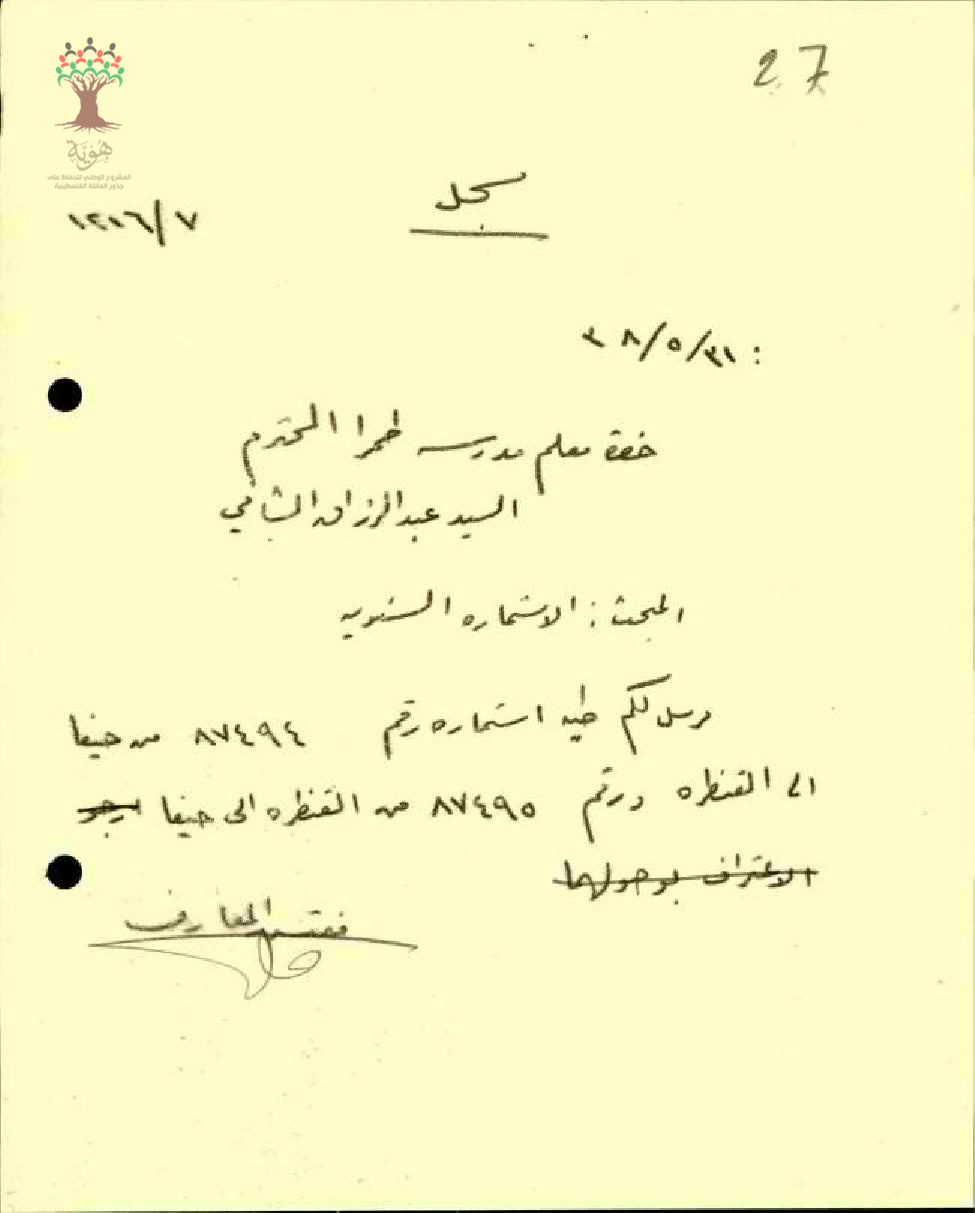 27
هوية
المشروع الوطني للحفاظ على
جذور العائلة الفلسطينية
سجل
١٢١٦/٧
: ٣٨/٥/٣١
حضرة معلم مدرسه طمرا المحترم
السيد عبدالرزاق الشافي
المبحث : الاستماره السنويه
مرسل لكم طيه استماره رقم ٨٧٤٩٤ من حيفا
الى القنطره ورقم ٨٧٤٩٥ من القنطره الى حيفا ارجو
الاعتراف بوصولهما
مفتش المعارف